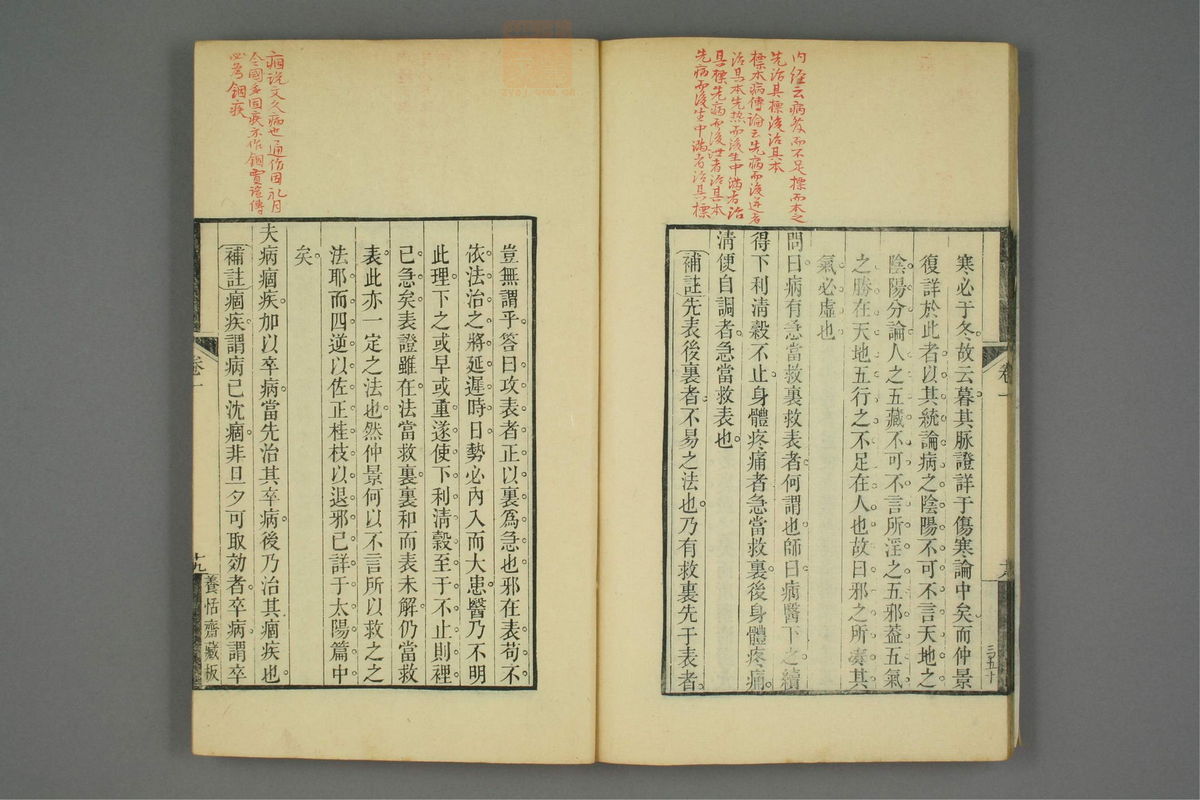 內經云病發而不足標而本之
先治其標後治其本
標本病傳論云先病而後逆者
治其本先熱而後生中滿者治
其標先病而後泄者治其本
先病而後生中滿者治其標
寒必于冬故云暮其脉證詳于傷寒論中矣而仲景
復詳於此者以其統論病之陰陽不可不言天地之
陰陽分論人之五藏不可不言所淫之五邪葢五氣
之勝在天地五行之不足在人也故曰邪之所凑其
氣必虛也
問曰病有急當救裏救表者何謂也師曰病醫下之續
得下利清榖不止身體疼痛者急當救裏後身體疼痛
清便自調者急當救表也
補註先表後裏者不易之法也乃有救裏先于表者
卷一
豈無謂乎答曰攻表者正以裏爲急也邪在表苟不
依法治之將延遲時日勢必內入而大患醫乃不明
此理下之或早或重遂使下利清榖至于不止則裡
已急矣表證雖在法當救裏裏和而表未解仍當救
表此亦一定之法也然仲景何以不言所以救之之
法耶而四逆以佐正桂枝以退邪已詳于太陽篇中
矣
夫病痼疾加以卒病當先治其卒病後乃治其痼疾也
補註痼疾謂病已沈痼非旦夕可取効者卒病謂卒
卷一
十九
養恬齋藏板
痼說文久病也通作固礼月
令國多固疾亦作錮賈誼傳
必為錮疾